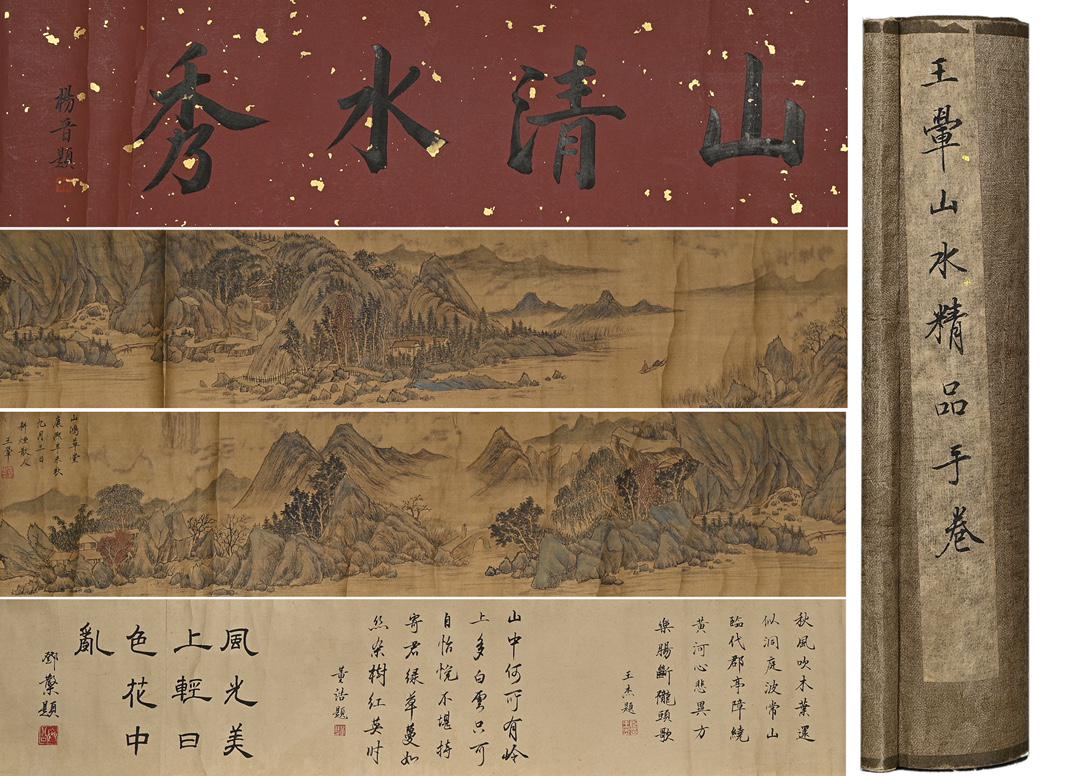 山清水秀
楊晋題
山鴻草堂
康熙辛未秋
九月三日
耕煙散人
王翬
秋風吹木葉還
似洞庭波常山
臨代郡亭障繞
黃河心悲異方
樂腸斷隴頭歌
王杰題
山中何所有岭
上多白雲只可
自怡悅不堪持
寄君綠草蔓如
絲雜樹紅英时
董浩題
風光美
上輕日
色花中
亂
鄧題
王翬山水精品手卷